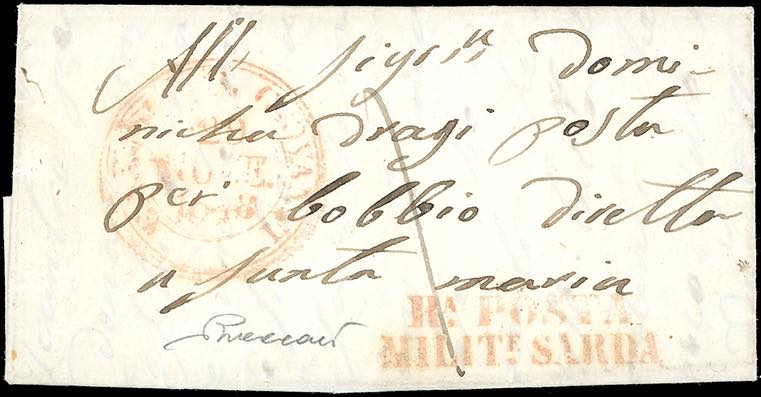 All Sigrn Domi-
nicha Dragi posta
per bobbio diretta
a Santa maria
20
NOVE.
1848
Ra. POSTA
MILITE. SARDA